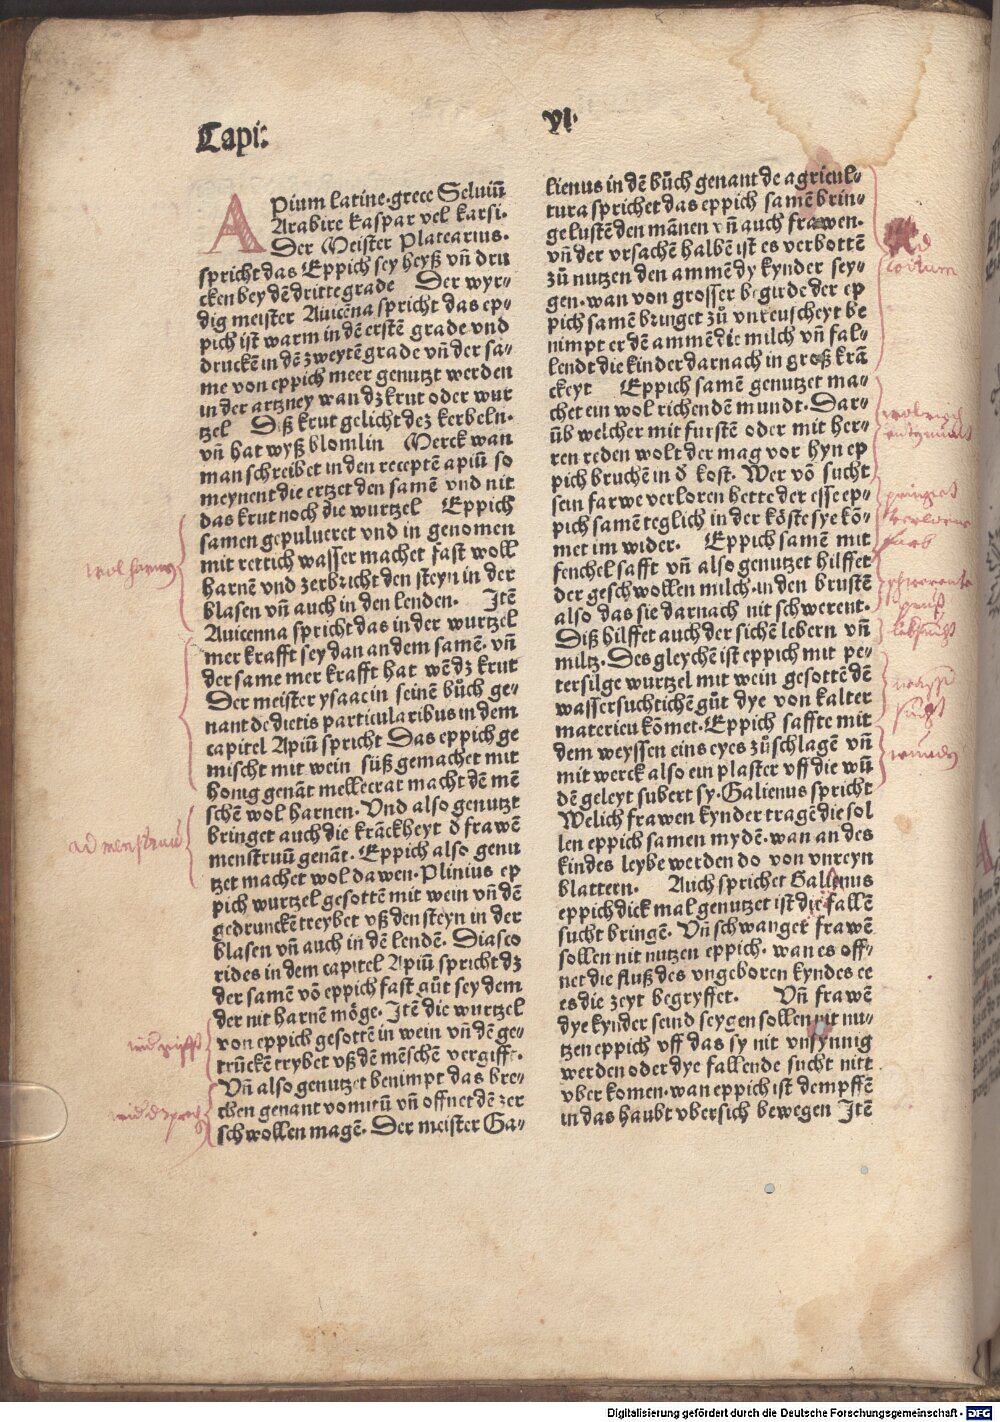 Capi:
vi.
APium latine·grece Seluiuͫ
Arabice kaspar vel karsi·
Der Meister Platearius·
spricht das Eppich sey heyß vñ dru
cken bey dē dritte grade Der wyr⸗
dig meister Auicēna spricht das ep⸗
pich ist warm in dē erstē grade vnd
druckē in dē zweytē grade vñ der sa⸗
me von eppich meer genutzt werden
in der artzney wan dz krut oder wur
tzel Diß krut gelicht dez kerbeln·
vñ hat wyß blomlin Merck wan
man schreibet in den receptē apiū so
meynent die ertzet den samē vnd nit
das krut noch die wurtzel Eppich
samen gepulueret vnd in genomen
mit rettich wasser machet fast woll
harnē vnd zerbricht den steyn in der
blasen vñ auch in den lenden. Itē
Auicenna spricht das in der wurtzel
mer krafft sey dan an dem samē· vñ
der same mer krafft hat wē dz krut
Der meister ysaac in seinē bůch ge⸗
nant de dietis particularibus in dem
capitel Apiū spricht Das eppich ge
mischt mit wein süß gemachet mit
honig genāt mellecrat macht dē mē
schē wol harnen· Vnd also genutzt
bringet auch die krāckheyt ð frawē
menstruū genāt· Eppich also genu
tzet machet wol dawen· Plinius ep
pich wurtzel gesottē mit wein vñ dē
gedrunckē treybet vß den steyn in der
blasen vñ auch in dē lendē· Diasco
rides in dem capitel Apiū spricht dz
der samē vō eppich fast gůt sey dem
der nit harnē möge· Itē die wurtzel
von eppich gesottē in wein vñ dē ge⸗
trūckē trybet vß dē mēschē vergifft·
Vñ also genutzet benimpt das bre⸗
chen genant vomitū vñ offnet dē zer
schwollen magē· Der meister Ga⸗
lienus in dē bůch genant de agricul⸗
tura sprichet das eppich samē brin⸗
ge lustē den mānen vñ auch frawen·
vñ der vrsachē halbē ist es verbottē
zů nutzen den ammē dy kynder sey⸗
gen· wan von grosser begirde der ep
pich samē bringet zů vnkeuscheyt be
nimpt er dē ammē die milch vñ fal⸗
lendt die kinder darnach in groß krā
ckeyt Eppich samē genutzet ma⸗
chet ein wol richendē mundt· Dar⸗
üb welcher mit furstē oder mit her⸗
ren reden wolt der mag vor hyn ep
pich bruchē in ð kost· Wer vō sucht
sein farwe verloren hette der esse ep⸗
pich samē teglich in der kőste sye kō⸗
met im wider· Eppich samē mit
fenchel safft vñ also genutzet hilffet
der geschwollen milch·in den brustē
also das sie darnach nit schwerent·
Diß hilffet auch der sichē lebern vñ
miltz· Des gleychē ist eppich mit pe⸗
tersilge wurtzel mit wein gesottē dē
wassersuchtichē gůt dye von kalter
materieu kōmet· Eppich saffte mit
dem weyssen eins eyes zůschlagē vñ
mit werck also ein plaster vff die wū
dē geleyt subert sy· Galienus spricht
Welich frawen kynder tragē die sol
len eppich samen mydē· wan an des
kindes leybe werden do von vnreyn
blattern. Auch sprichet Galienus
eppich dick mal genutzet ist die fallē
sucht bringē· Vñ schwanger frawē
sollen nit nutzen eppich· wan es off⸗
net die fluß des vngeboren kyndes ee
es die zeyt begryffet. Vñ frawē
dye kynder seind seygen sollen nit nu⸗
tzen eppich vff das sy nit vnsynnig
werden oder dye fallende sucht nitt
vber komen· wan eppich ist dempffē
in das haubt vbersich bewegen Itē
ad
coitum
wol harnen
ad menstruū
wunden
Digitalisierung gefördert durch die Deutsche Forschungsgemeinschaft - DFG